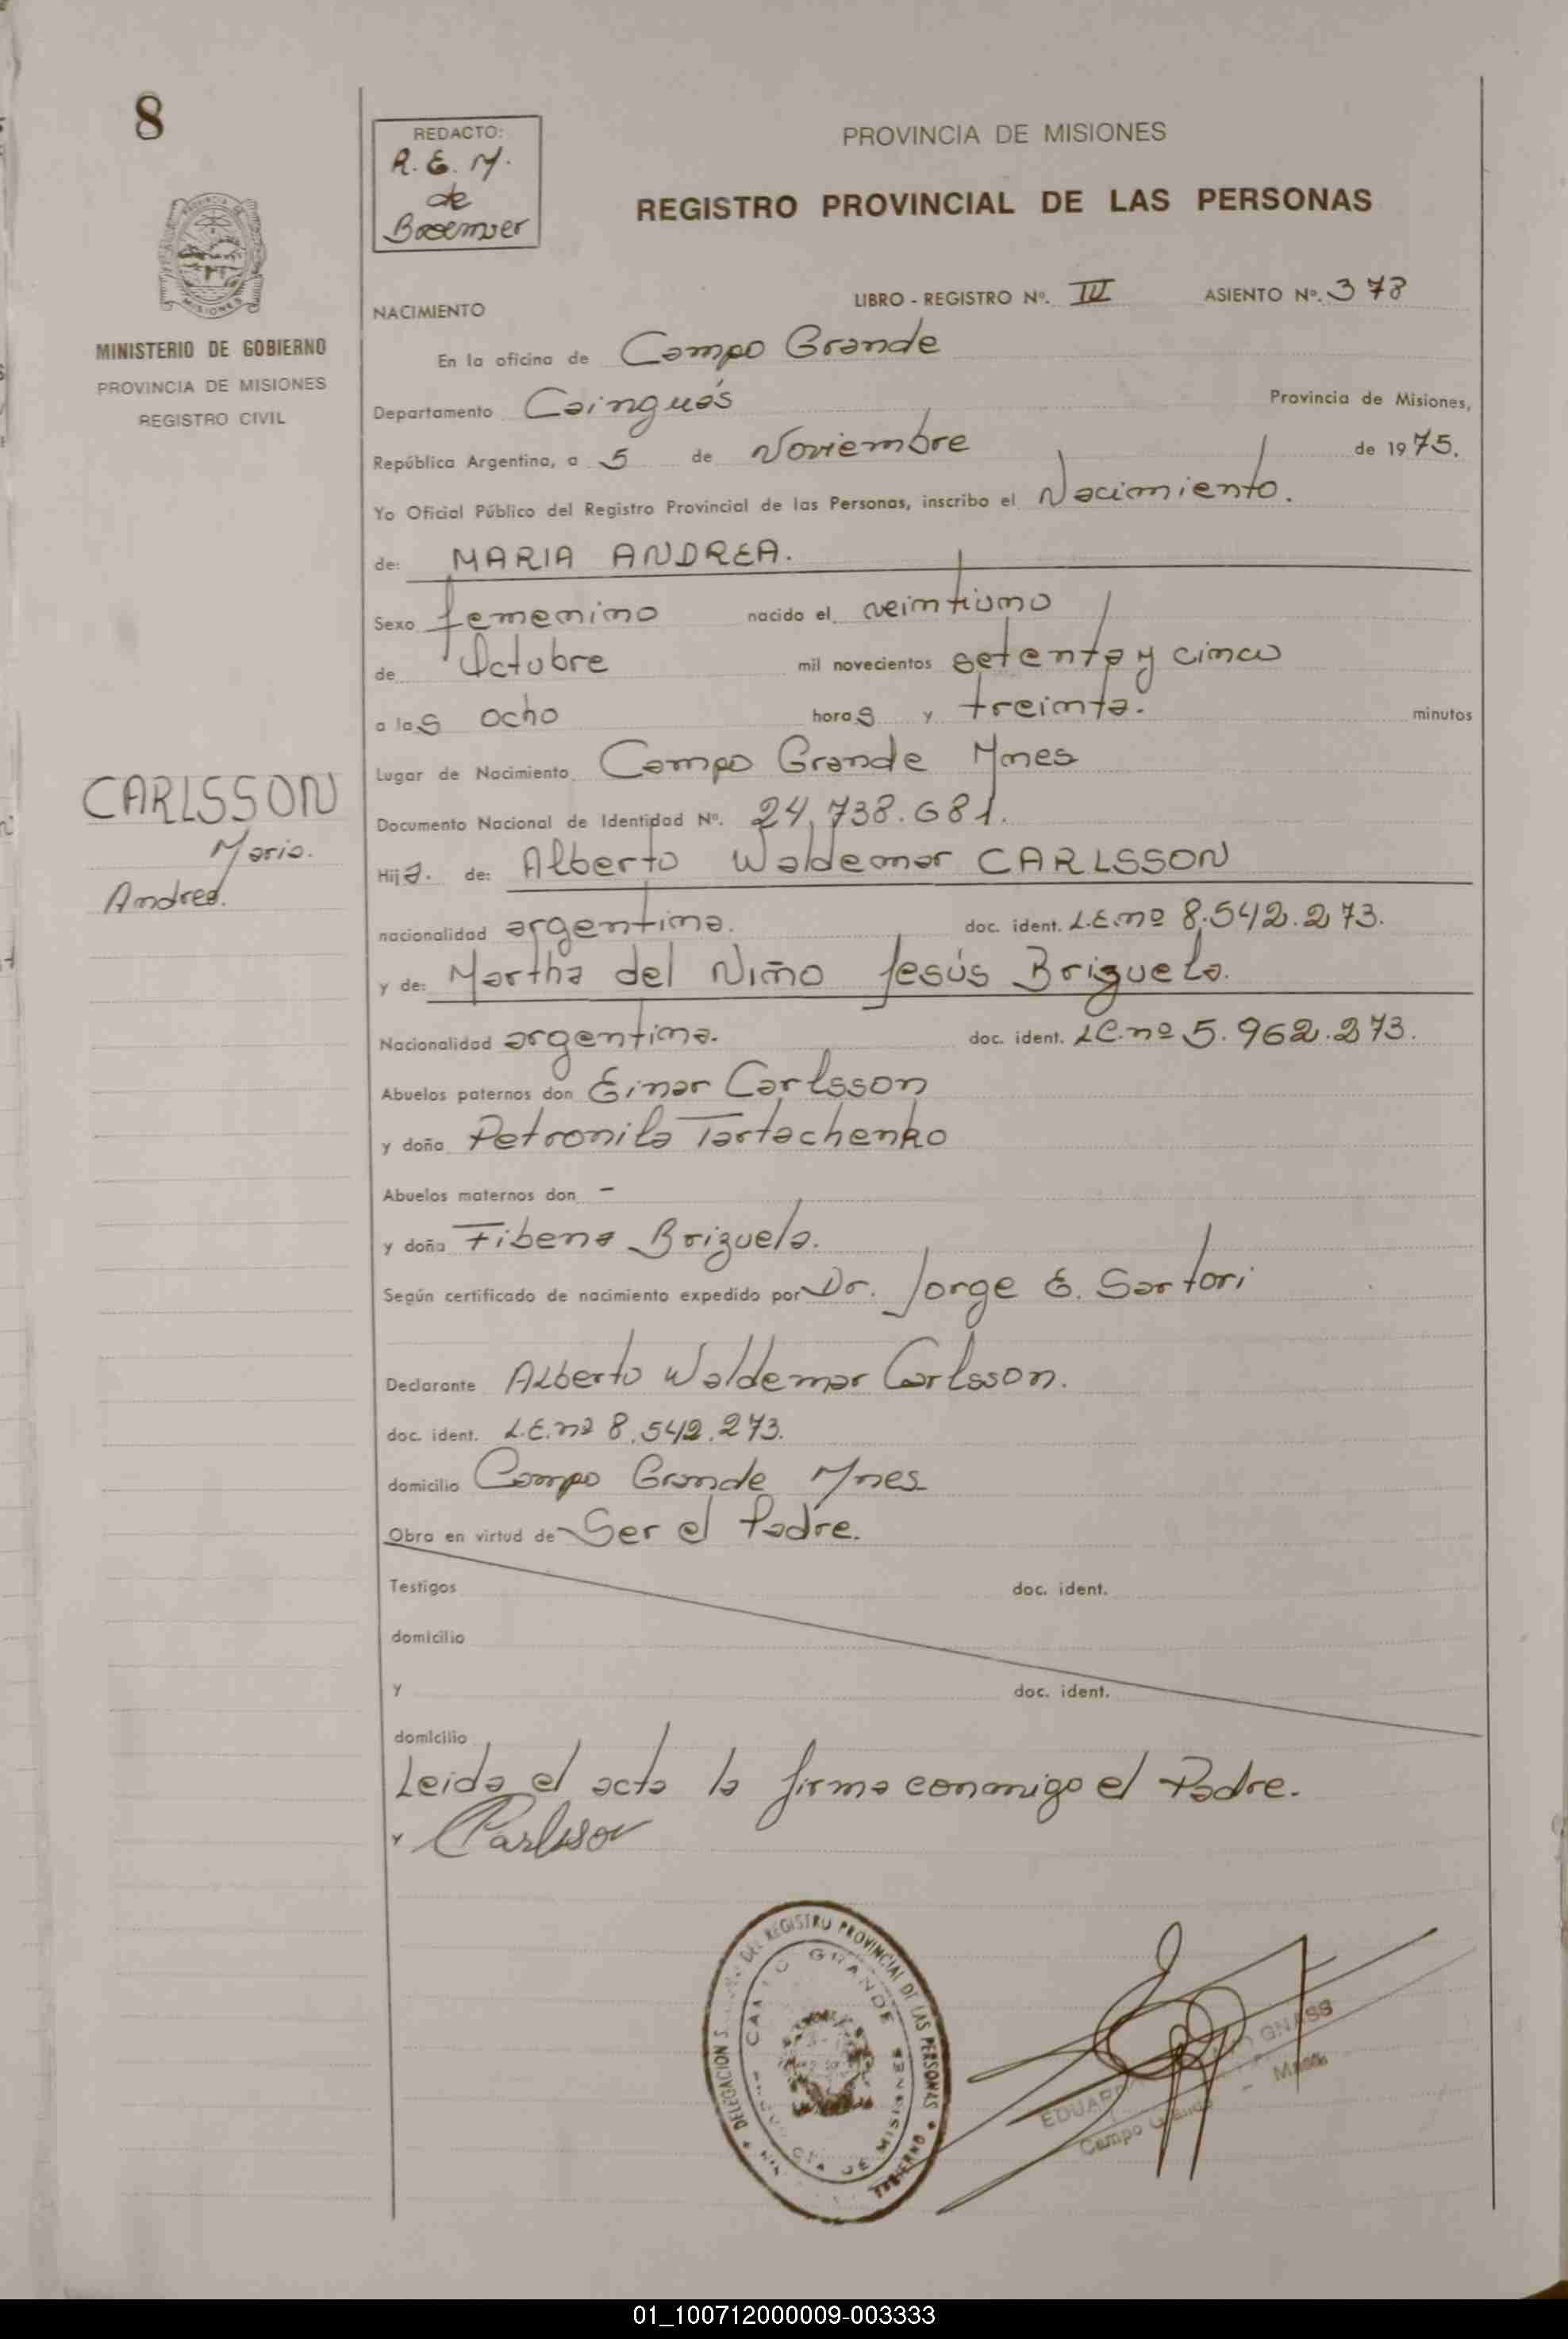 8
REDACTO:
R. E. M.
de
PROVINCIA DE MISIONES
REGISTRO PROVINCIAL DE LAS PERSONAS
MINISTERIO DE GOBIERNO
PROVINCIA DE MISIONES
REGISTRO CIVIL
NACIMIENTO LIBRO - REGISTRO Nº. III ASIENTO Nº. 378
En la oficina de Campo Grande
Departamento Cainguás Provincia de Misiones,
República Argentina, a 5 de Noviembre de 1975.
Yo Oficial Público del Registro Provincial de las Personas, inscribo el Nacimiento.
de: MARIA ANDREA.
Sexo femenino nacido el veintiuno
de Octubre mil novecientos setenta y cinco
a las ocho horas y treinta. minutos
Lugar de Nacimiento Campo Grande Mnes
CARLSSON
Maria.
Andrea.
Documento Nacional de Identidad Nº. 24.738.681.
Hija. de: Alberto Waldemar CARLSSON
nacionalidad argentina. doc. ident. L.E.nº 8.542.273.
y de: Martha del Niño Jesús Brizuela.
Nacionalidad argentina. doc. ident. LC.nº 5.962.273.
Abuelos paternos don Einar Carlsson
y doña Petronila Tartachenko
Abuelos maternos don -
y doña Fibena Brizuela.
Según certificado de nacimiento expedido por Dr. Jorge E. Sartori
Declarante Alberto Waldemar Carlsson.
doc. ident. L.E.nº 8.542.273.
domicilio Campo Grande Mnes
Obra en virtud de Ser el Padre.
Testigos doc. ident.
domicilio
y doc. ident.
domicilio
Leida el acta la firma conmigo el Padre.
y Carlsson
DEL REGISTRO PROVINCIAL DE LAS PERSONAS
DELEGACION
GRANDE
DE MISIONES
GNASS
Campo Grande - Mnes
01_100712000009-003333